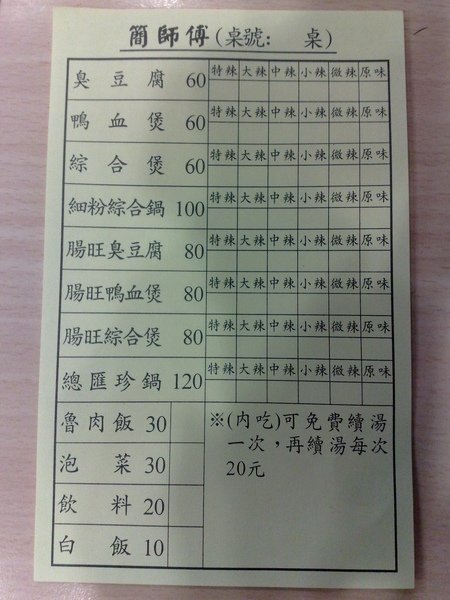 簡師傅(桌號: 桌)
臭豆腐 60 特辣 大辣 中辣 小辣 微辣 原味
鴨血煲 60 特辣 大辣 中辣 小辣 微辣 原味
綜合煲 60 特辣 大辣 中辣 小辣 微辣 原味
細粉綜合鍋 100 特辣 大辣 中辣 小辣 微辣 原味
腸旺臭豆腐 80 特辣 大辣 中辣 小辣 微辣 原味
腸旺鴨血煲 80 特辣 大辣 中辣 小辣 微辣 原味
腸旺綜合煲 80 特辣 大辣 中辣 小辣 微辣 原味
總匯珍鍋 120 特辣 大辣 中辣 小辣 微辣 原味
魯肉飯 30
泡菜 30
飲料 20
白飯 10
※(內吃)可免費續湯
一次，再續湯每次
20元